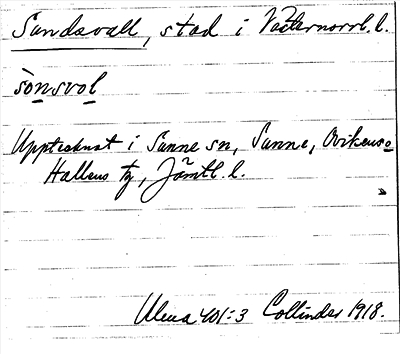 Sundsvall, stad i Västernorrl. l.
sonsvol
Upptecknat i Sunne sn, Sunne, Ovikens o
Hallens tg, Jämtl. l.
401:3 Collinder 1918.